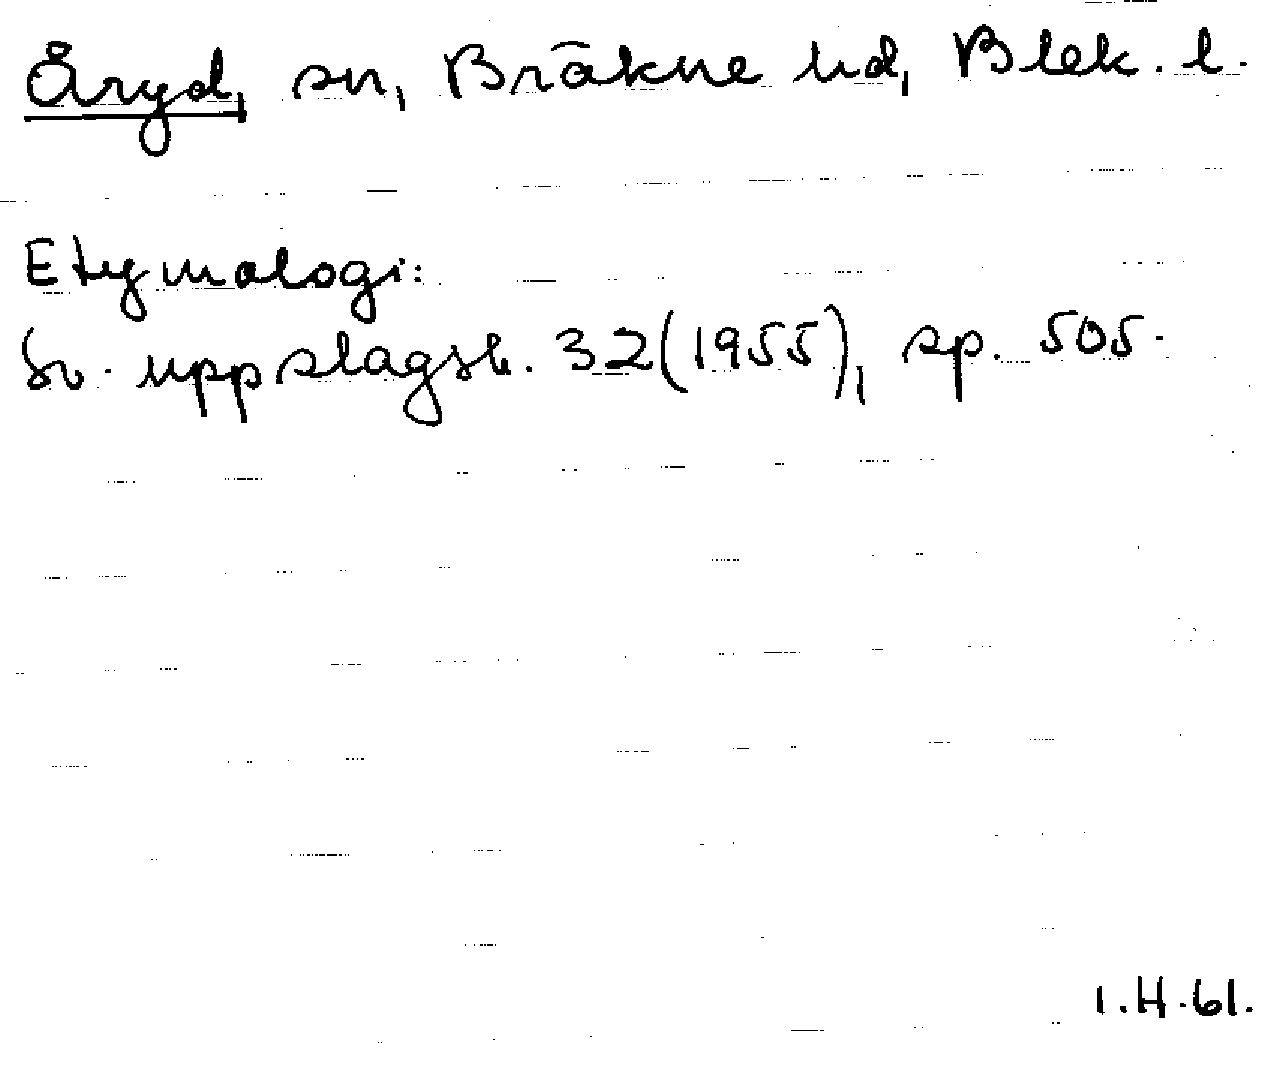 Åryd, sn, Bräkne hd, Blek. l.
Etymologi:
Sv. uppslagsb. 32 (1955), sp. 505.
I.H.61.